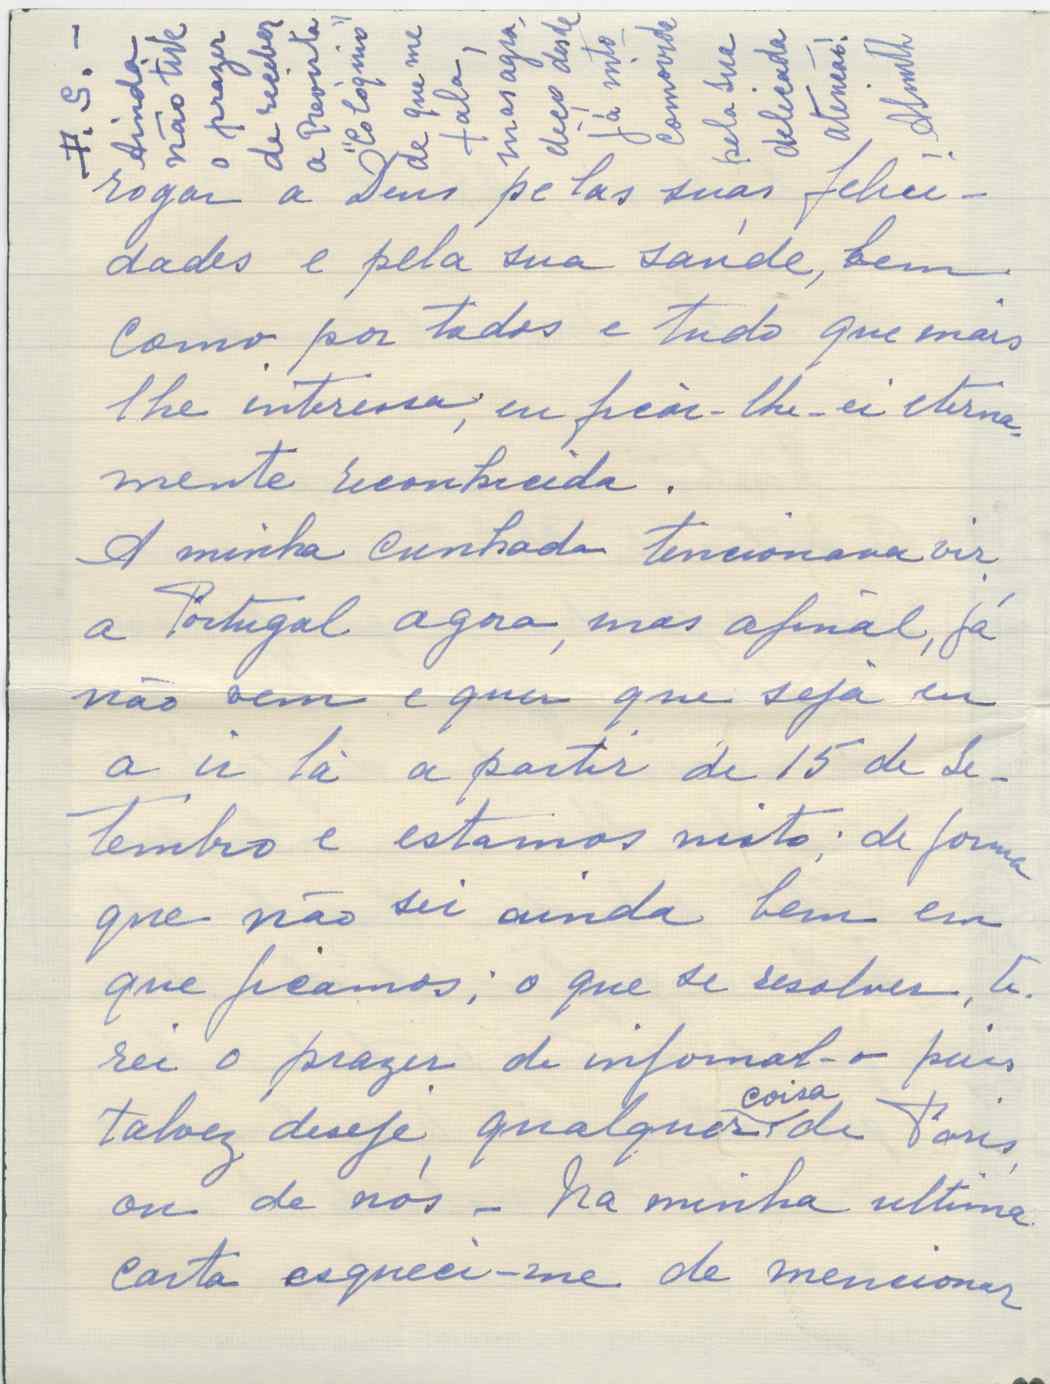 P. S. -
Ainda
não tive
o prazer
de receber
a Revista
"Colóquio"
de que me
fala,
mas agra,
deço desde
já mto
comovida
pela sua
delicada
atenção!
rogar a Deus pelas suas felici-
dades e pela sua saúde, bem
como por todos e tudo que mais
lhe interessa; eu ficar-lhe-ei eterna-
mente reconhecida.
A minha cunhada tencionava vir
a Portugal agora, mas afinal, já
não vem e quer que seja eu
a ir lá a partir de 15 de Se-
tembro e estamos nisto; de forma
que não sei ainda bem em
que ficamos; o que se resolver, te-
rei o prazer de informal-o pois
talvez deseje qualquer coisa de Paris,
ou de nós - Na minha ultima
carta esqueci-me de mencionar